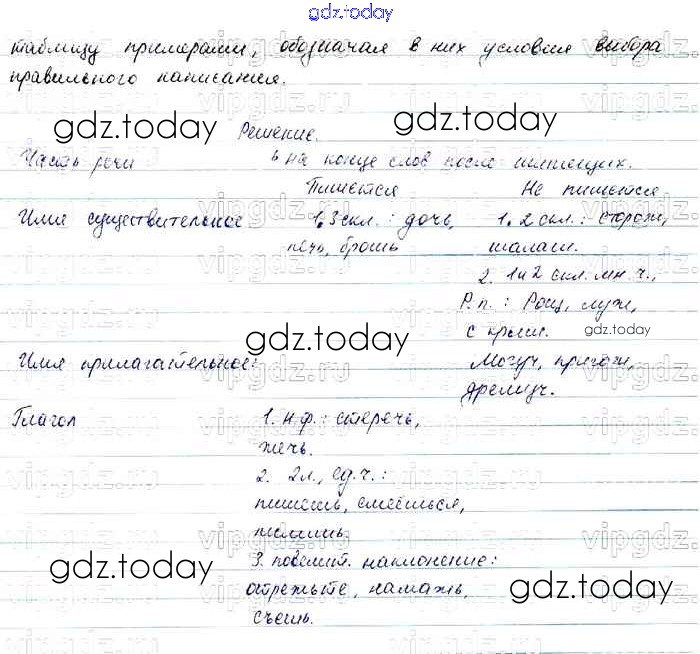 gdz.today
таблицу примерами, обозначая в них условия выбора
правильного написания.
gdz.today gdz.today
Решение.
Часть речи ь на конце слов после шипящих.
Пишется Не пишется
Имя существительное 1. 3 скл.: дочь, 1. 2 скл.: сторож,
печь, брошь шалаш.
2. 1 и 2 скл. мн. ч.,
Р.п.: Рощ, луж,
gdz.today с крыш. gdz.today
Имя прилагательное: Могуч, пригож,
дремуч.
Глагол 1. н.ф.: стеречь,
жечь.
2. 2л., ед.ч.:
пишешь, смеёшься,
пилишь.
gdz.today 3. повелит. наклонение: gdz.today
отрежьте, намажь,
съешь.